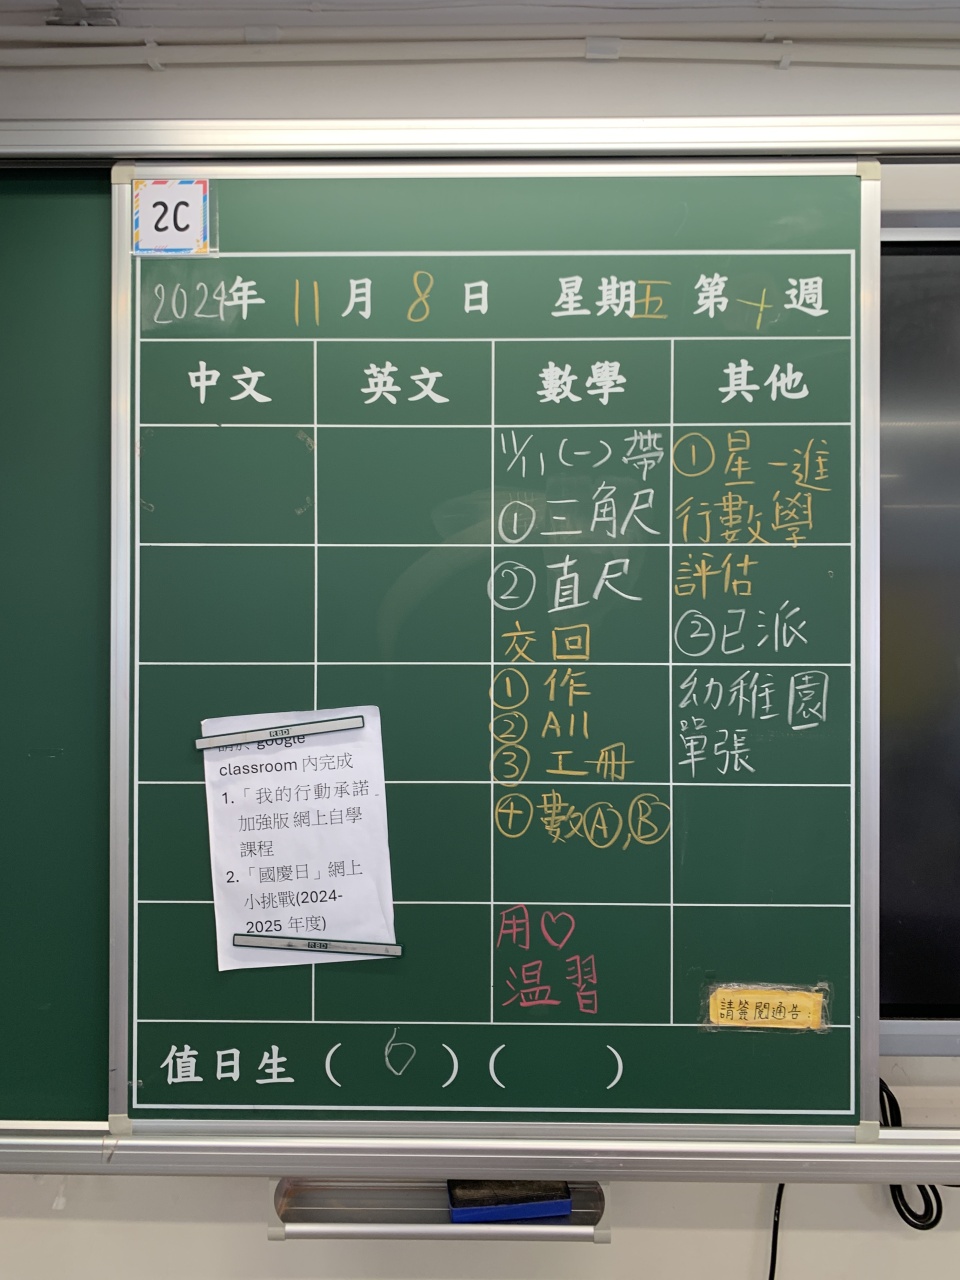 2C
2024年 11月 8日 星期五 第十週
中文 英文 數學 其他
11/11 (一) 帶
①三角尺
②直尺
交回
①作
②All
③工冊
④數Ⓐ,Ⓑ
用♡
温習
①星一進
行數學
評估
②已派
幼稚園
單張
請於 google
classroom 內完成
1.「我的行動承諾
加強版 網上自學
課程
2.「國慶日」網上
小挑戰(2024-
2025 年度)
RBD
RBD
請簽閱通告:
值日生 ( 6 ) ( )